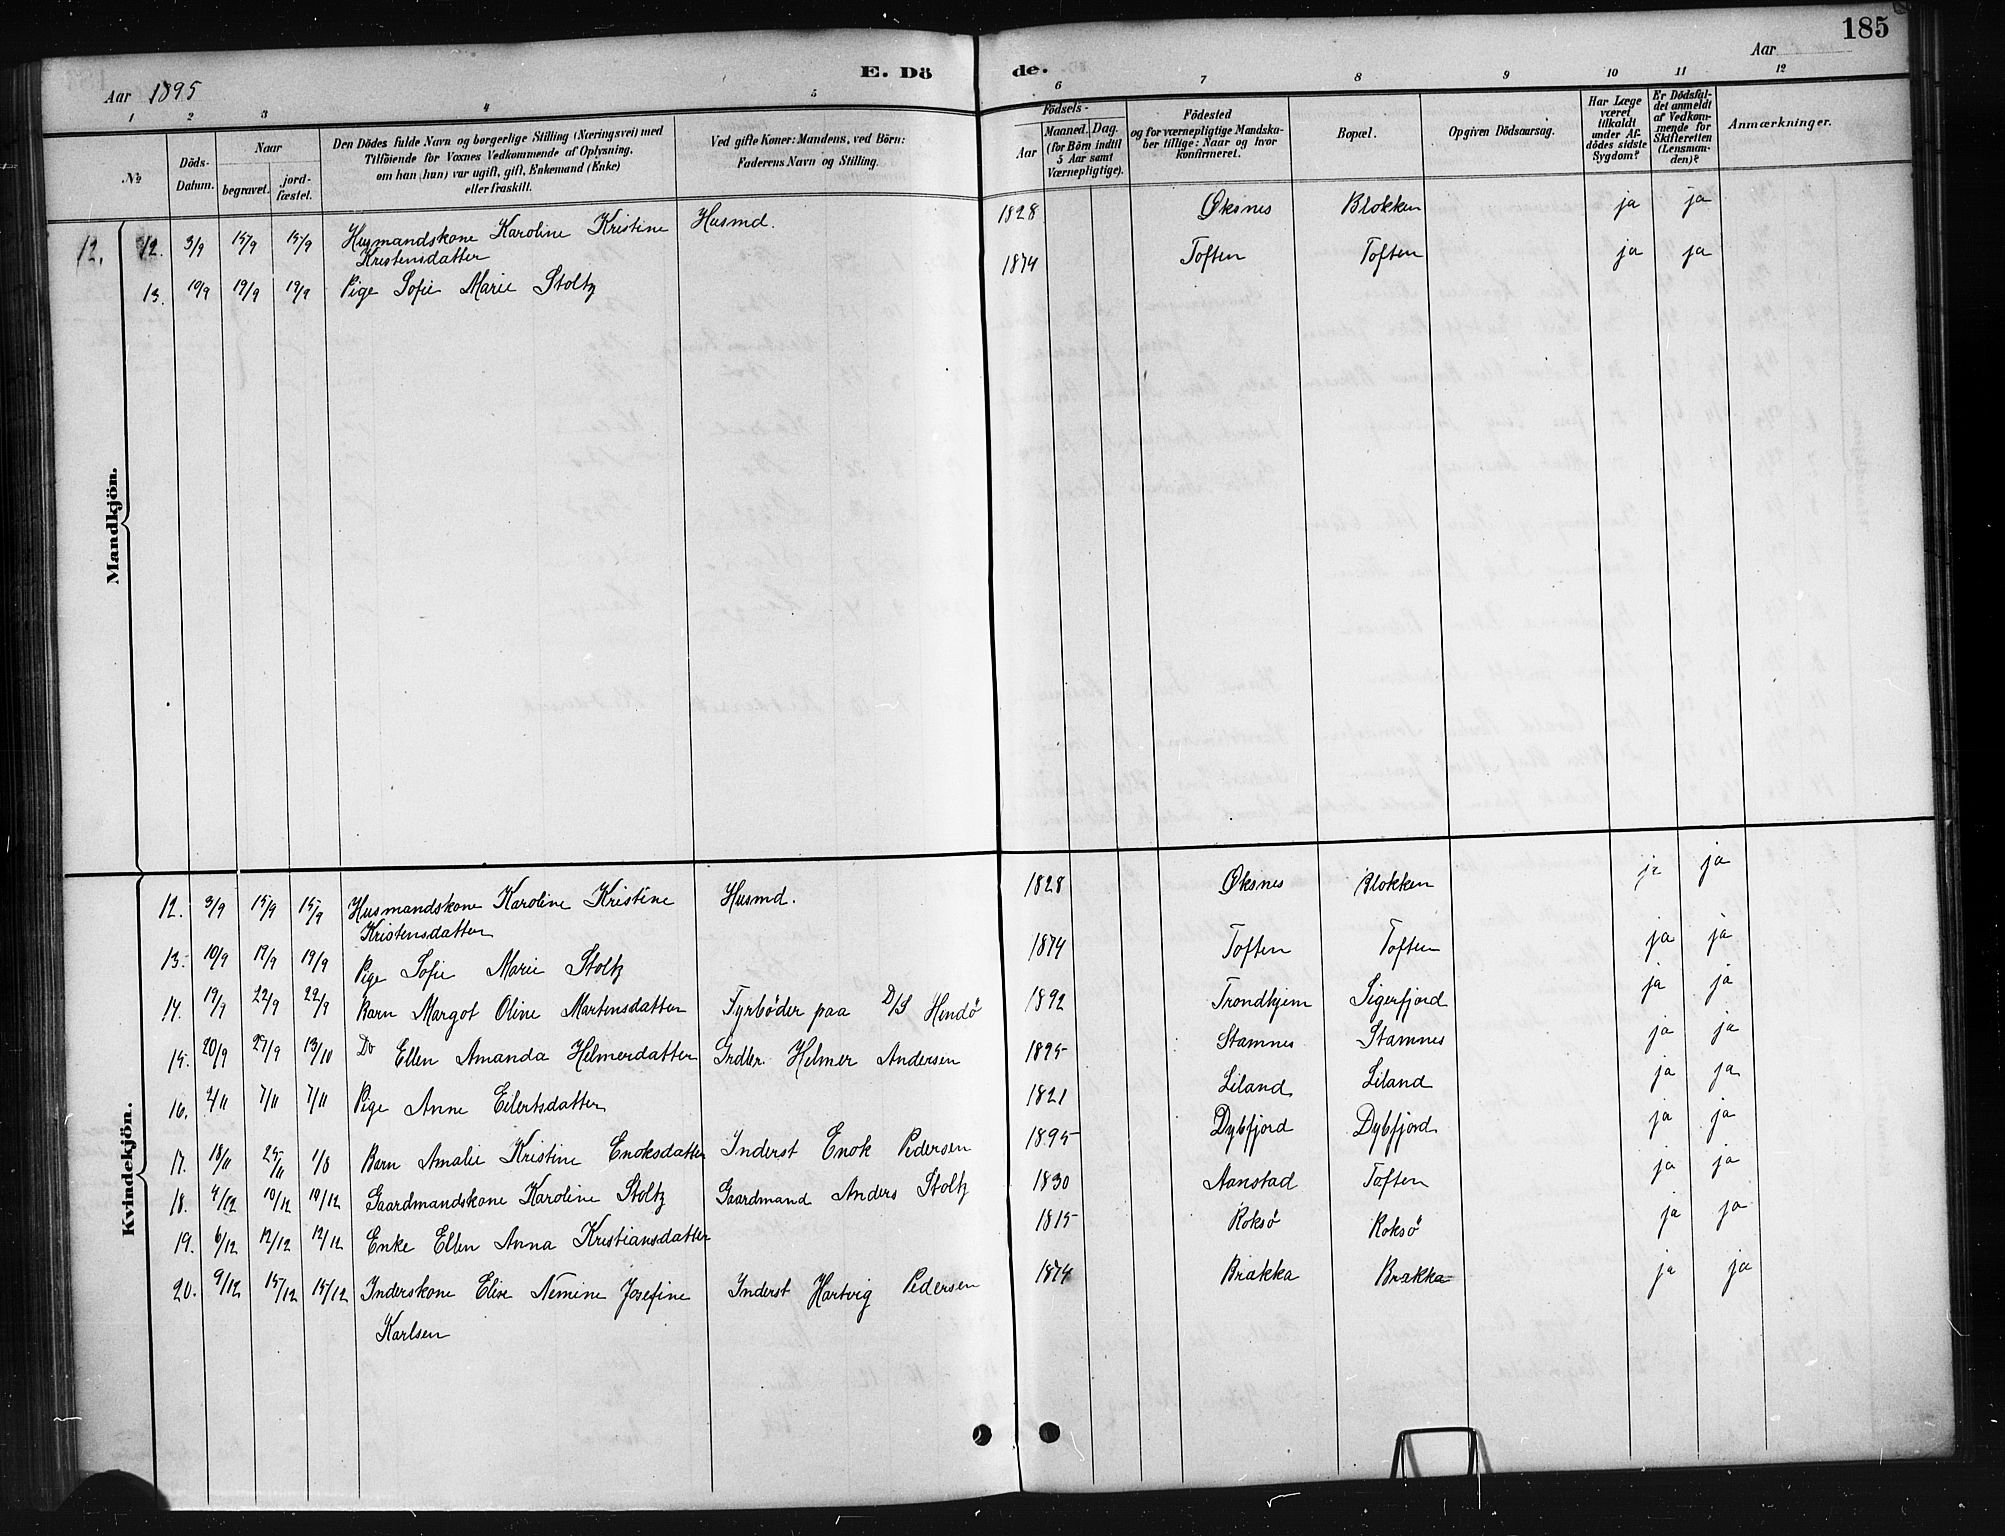 185
Aar 1895
E. Dö de.
Aar
1 2 3 4 5 6 7 8 9 10 11 12
№
Döds-Datum.
Naar
begravet.
jord-fæstet.
Den Dödes fulde Navn og borgerlige Stilling (Næringsvei) med
Tilföiende for Voxnes Vedkommende af Oplysning,
om han (hun) var ugift, gift, Enkemand (Enke)
eller fraskilt.
Ved gifte Koner: Mandens, ved Börn:
Faderens Navn og Stilling.
Födsels-
Aar
Maaned. Dag.
(for Börn indtil
5 Aar samt
Værnepligtige).
Födested
og for værnepligtige Mandska-
ber tillige: Naar og hvor
konfirmeret.
Bopæl.
Opgiven Dödsaarsag.
Har Læge
været
tilkaldt
under Af-
dödes sidste
Sygdom?
Er Dödsfal-
det anmeldt
af Vedkom-
mende for
Skifteretten
(Lensman-
den)?
Anmærkninger.
Mandkjön.
12. 12. 3/9 15/9 15/9 Husmandskone Karoline Kristine Husmd. 1828 Øksnes Blokken ja ja
Kristensdatter
13. 10/9 19/9 19/9 Pige Sofie Marie Stoltz 1874 Toften Toften ja ja
Kvindekjön.
12. 3/9 15/9 15/9 Husmandskone Karoline Kristine Husmd. 1828 Øksnes Blokken ja ja
Kristensdatter
13. 10/9 19/9 19/9 Pige Sofie Marie Stoltz 1874 Toften Toften ja ja
14. 19/9 22/9 22/9 Barn Margot Oline Martensdatter Fyrbøder paa D/S Hindö 1892 Trondhjem Sigerfjord ja ja
15. 20/9 27/9 13/10 Do Ellen Amanda Helmerdatter Indler. Helmer Andersen 1895 Stamnes Stamnes ja ja
16. 2/11 7/11 7/11 Pige Anne Eilertsdatter 1821 Liland Liland ja ja
17. 18/11 25/11 1/8 Barn Amalie Kristine Enoksdatter Inderst Enok Pedersen 1895 Dybfjord Dybfjord ja ja
18. 4/12 10/12 10/12 Gaardmandskone Karoline Stoltz Gaardmand Anders Stoltz 1830 Aanstad Toften ja ja
19. 6/12 12/12 12/12 Enke Ellen Anna Kristiansdatter 1815 Roksö Roksö ja ja
20. 9/12 15/12 15/12 Inderskone Elise Nemine Josefine Inderst Hartvig Pedersen 1874 Brakka Brakka ja ja
Karlsen